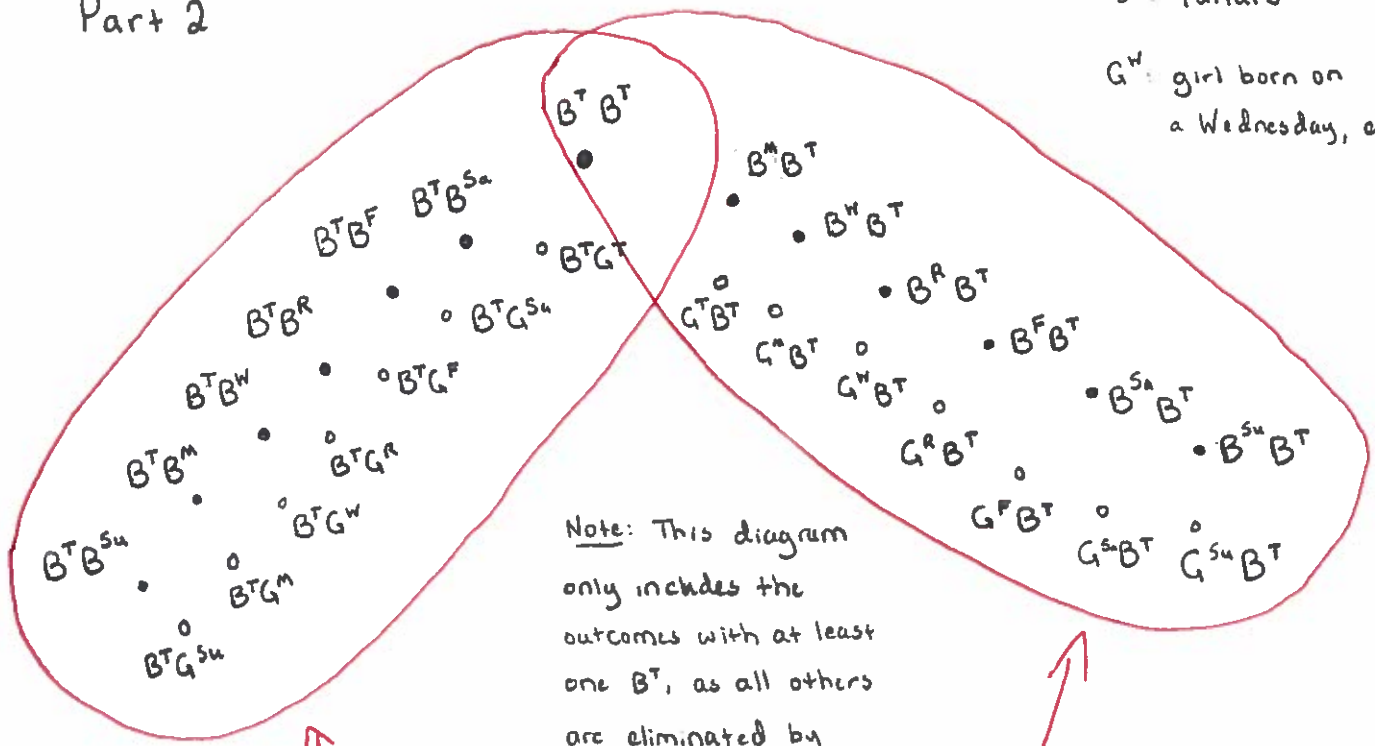 Part 2
failure
Gᵂ: girl born on
a Wednesday,
B^T B^T
B^T B^Sa
B^T B^F
B^T B^R
B^T B^W
B^T B^M
B^T B^Su
B^T G^T
B^T G^Su
B^T G^F
B^T G^R
B^T G^W
B^T G^M
B^T G^Su
B^M B^T
B^W B^T
B^R B^T
B^F B^T
B^Sa B^T
B^Su B^T
G^T B^T
G^M B^T
G^W B^T
G^R B^T
G^F B^T
G^Sa B^T
G^Su B^T
Note: This diagram
only includes the
outcomes with at least
one B^T, as all others
are eliminated by